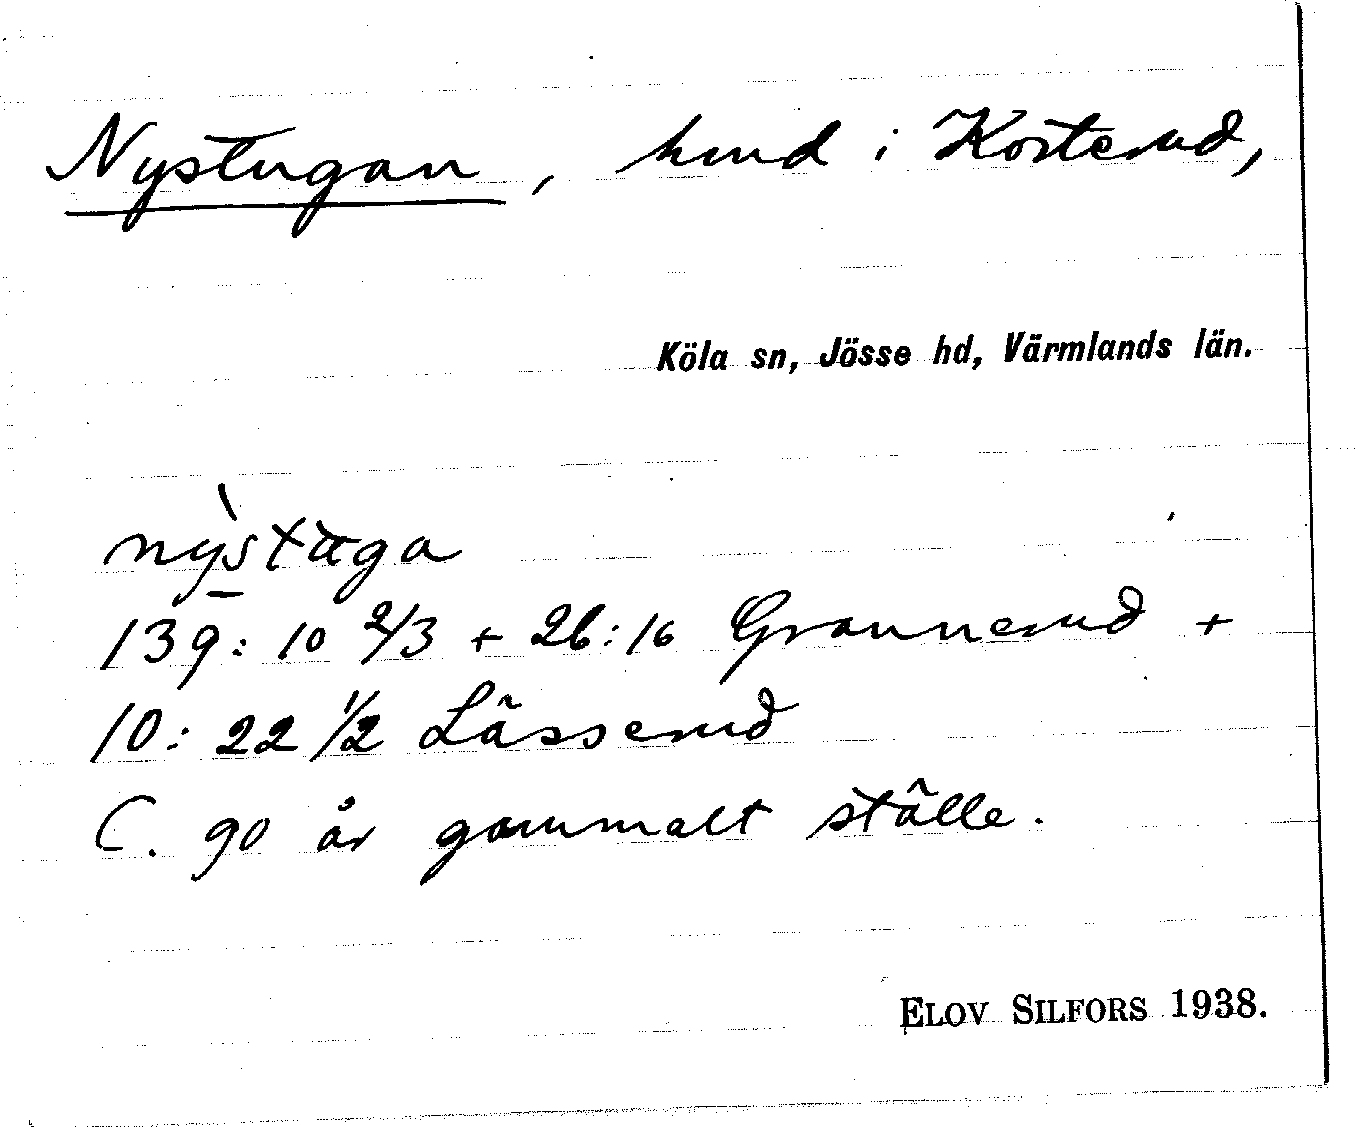 Nystugan, hmd i Kosterud,
Köla sn, Jösse hd, Värmlands län.
nỳstaga
139: 10 2/3 + 2b: 16 Grannerud +
10: 22 1/2 Lässerud
C. 90 år gammalt ställe.
ELOV SILFORS 1938.